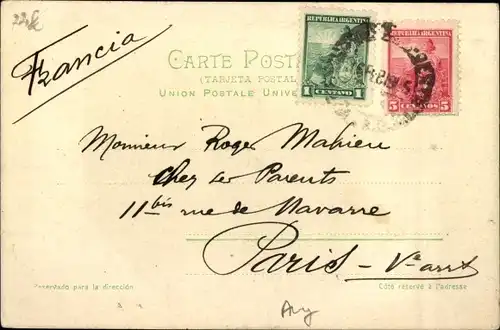 Francia
CARTE POSTA
(TARJETA POSTAL
UNION POSTALE UNIVE
REPUBLICA ARGENTINA
1 CENTAVO 1
REPUBLICA ARGENTINA
5 CENTAVOS 5
Monsieur Roger Mahieu
Chez ses Parents
11bis rue de Navarre
Paris - Ve arrt
Reservado para la dirección
Côté réservé à l'adresse